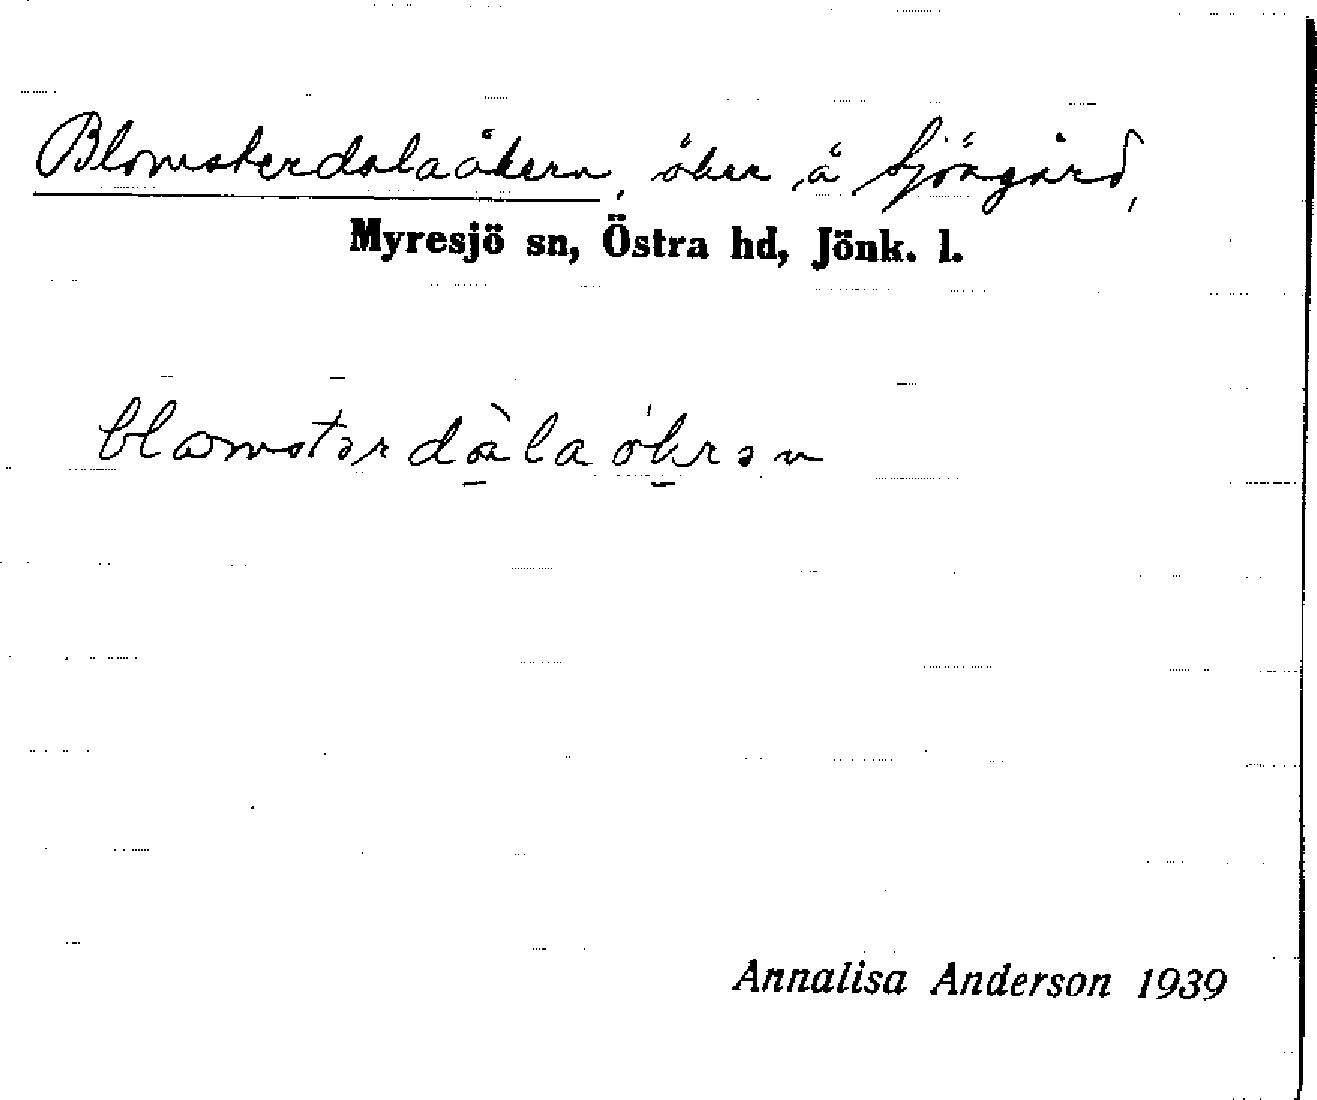 Blomsterdalaåkern, åker å Sjöagård,
Myresjö sn, Östra hd, Jönk. l.
blomstərdàlaåkrən
Annalisa Anderson 1939